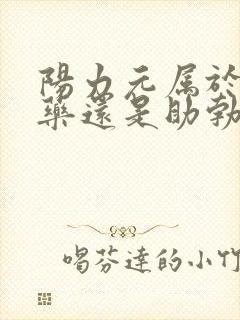 陽力元属於
藥還是助勃
喝芬達的小竹